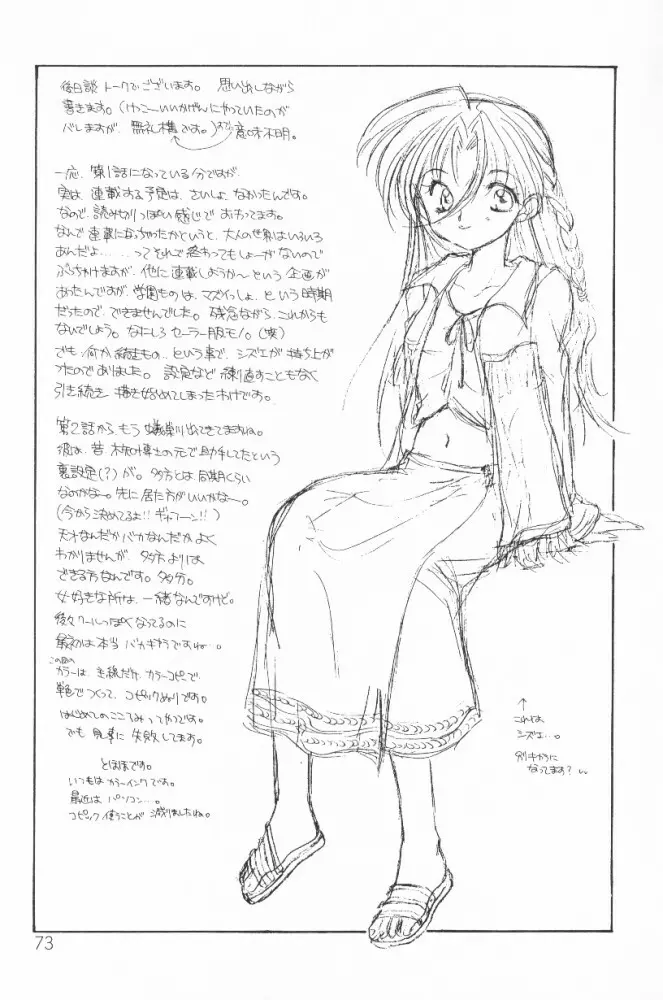 後日談 トークでございます。 思い出しながら
書きます。(けっこーいいかげんにやっていたのが
バレますが、無礼構です。)おい意味不明。
一応、第1話になっている分ですが
実は、連載する予定は、さいしょ、なかったんです。
なので、読み切りっぽい感じで おわってます。
なんで連載になっちゃったかというと、大人の世界はいろいろ
あんだよ……ってそれで終わってもしょーがないので
ぶっちゃけますが、他に連載しようか〜という企画が
あったんですが、学園ものは、マズイっしょ、という時期
だったので、できませんでした。残念ながら、これからも
ないでしょう。なにしろ セーラー服モノ。(笑)
でも、何か続きもの、という事で、シズエが持ち上が
ったのでありました。設定など練り直すこともなく
引き続き 描き始めてしまったわけです。
第2話からもう 出てきてますね。
彼は、昔 博士の元で助手してたという
裏設定(?)が。多方とは同期くらい
なのかな〜。先に居た方がいいかな〜。
(今から決めてるよ!!ギャフーン!!)
天才なんだかバカなんだかよく
わかりませんが、多方よりは
できる方なんです。多分。
女好きな所は、一緒なんですけど。
後々クールっぽくなってるのに
最初は本当 バカキャラですね…。
この回の
カラーは、主線だけ、カラーコピーで、
単色でつくって、コピックぬりです。
はじめてのこころみってやつです。
でも 見事に 失敗してます。
とほほです。
いつもはカラーインクです。
最近は パソコン…。
コピック使うことが 減りましたね。
↑
これは
シズエ…。
別キャラに
なってます?
73